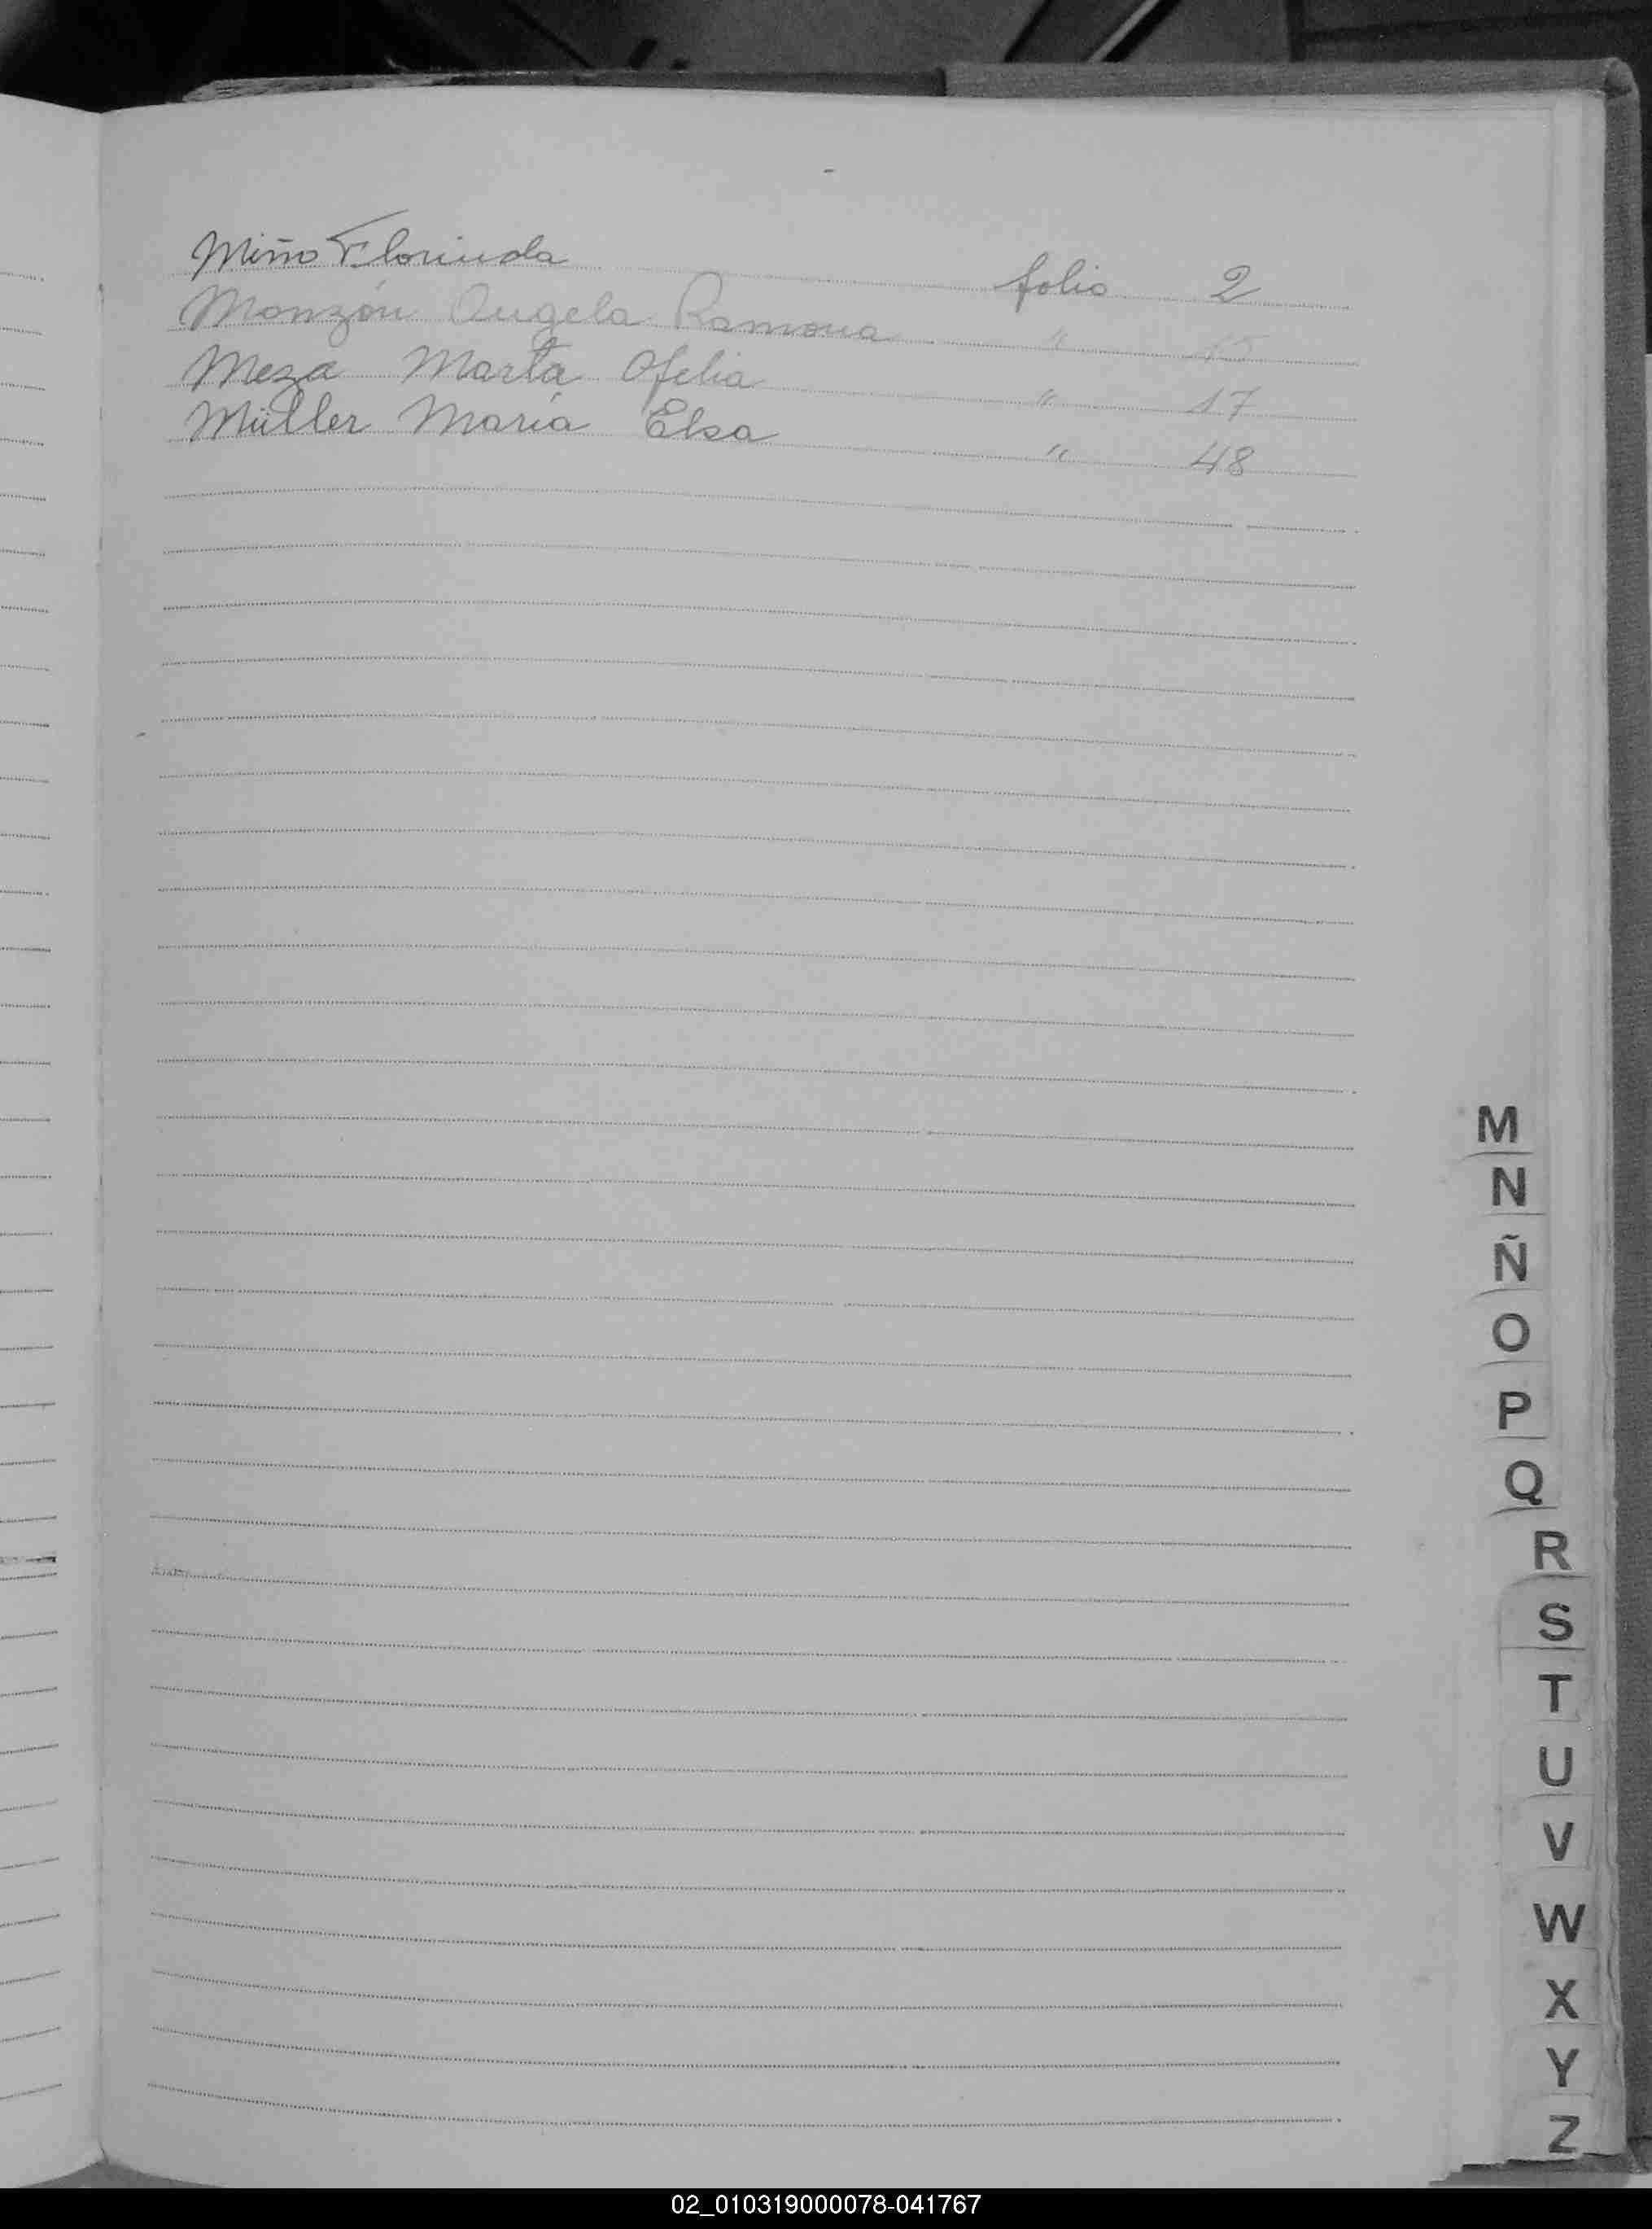 Miño Florinda folio 2
Monzón Angela Ramona " 15
Meza Marta Ofelia " 17
Müller María Elsa " 48
M
N
Ñ
O
P
Q
R
S
T
U
V
W
X
Y
Z
02_010319000078-041767